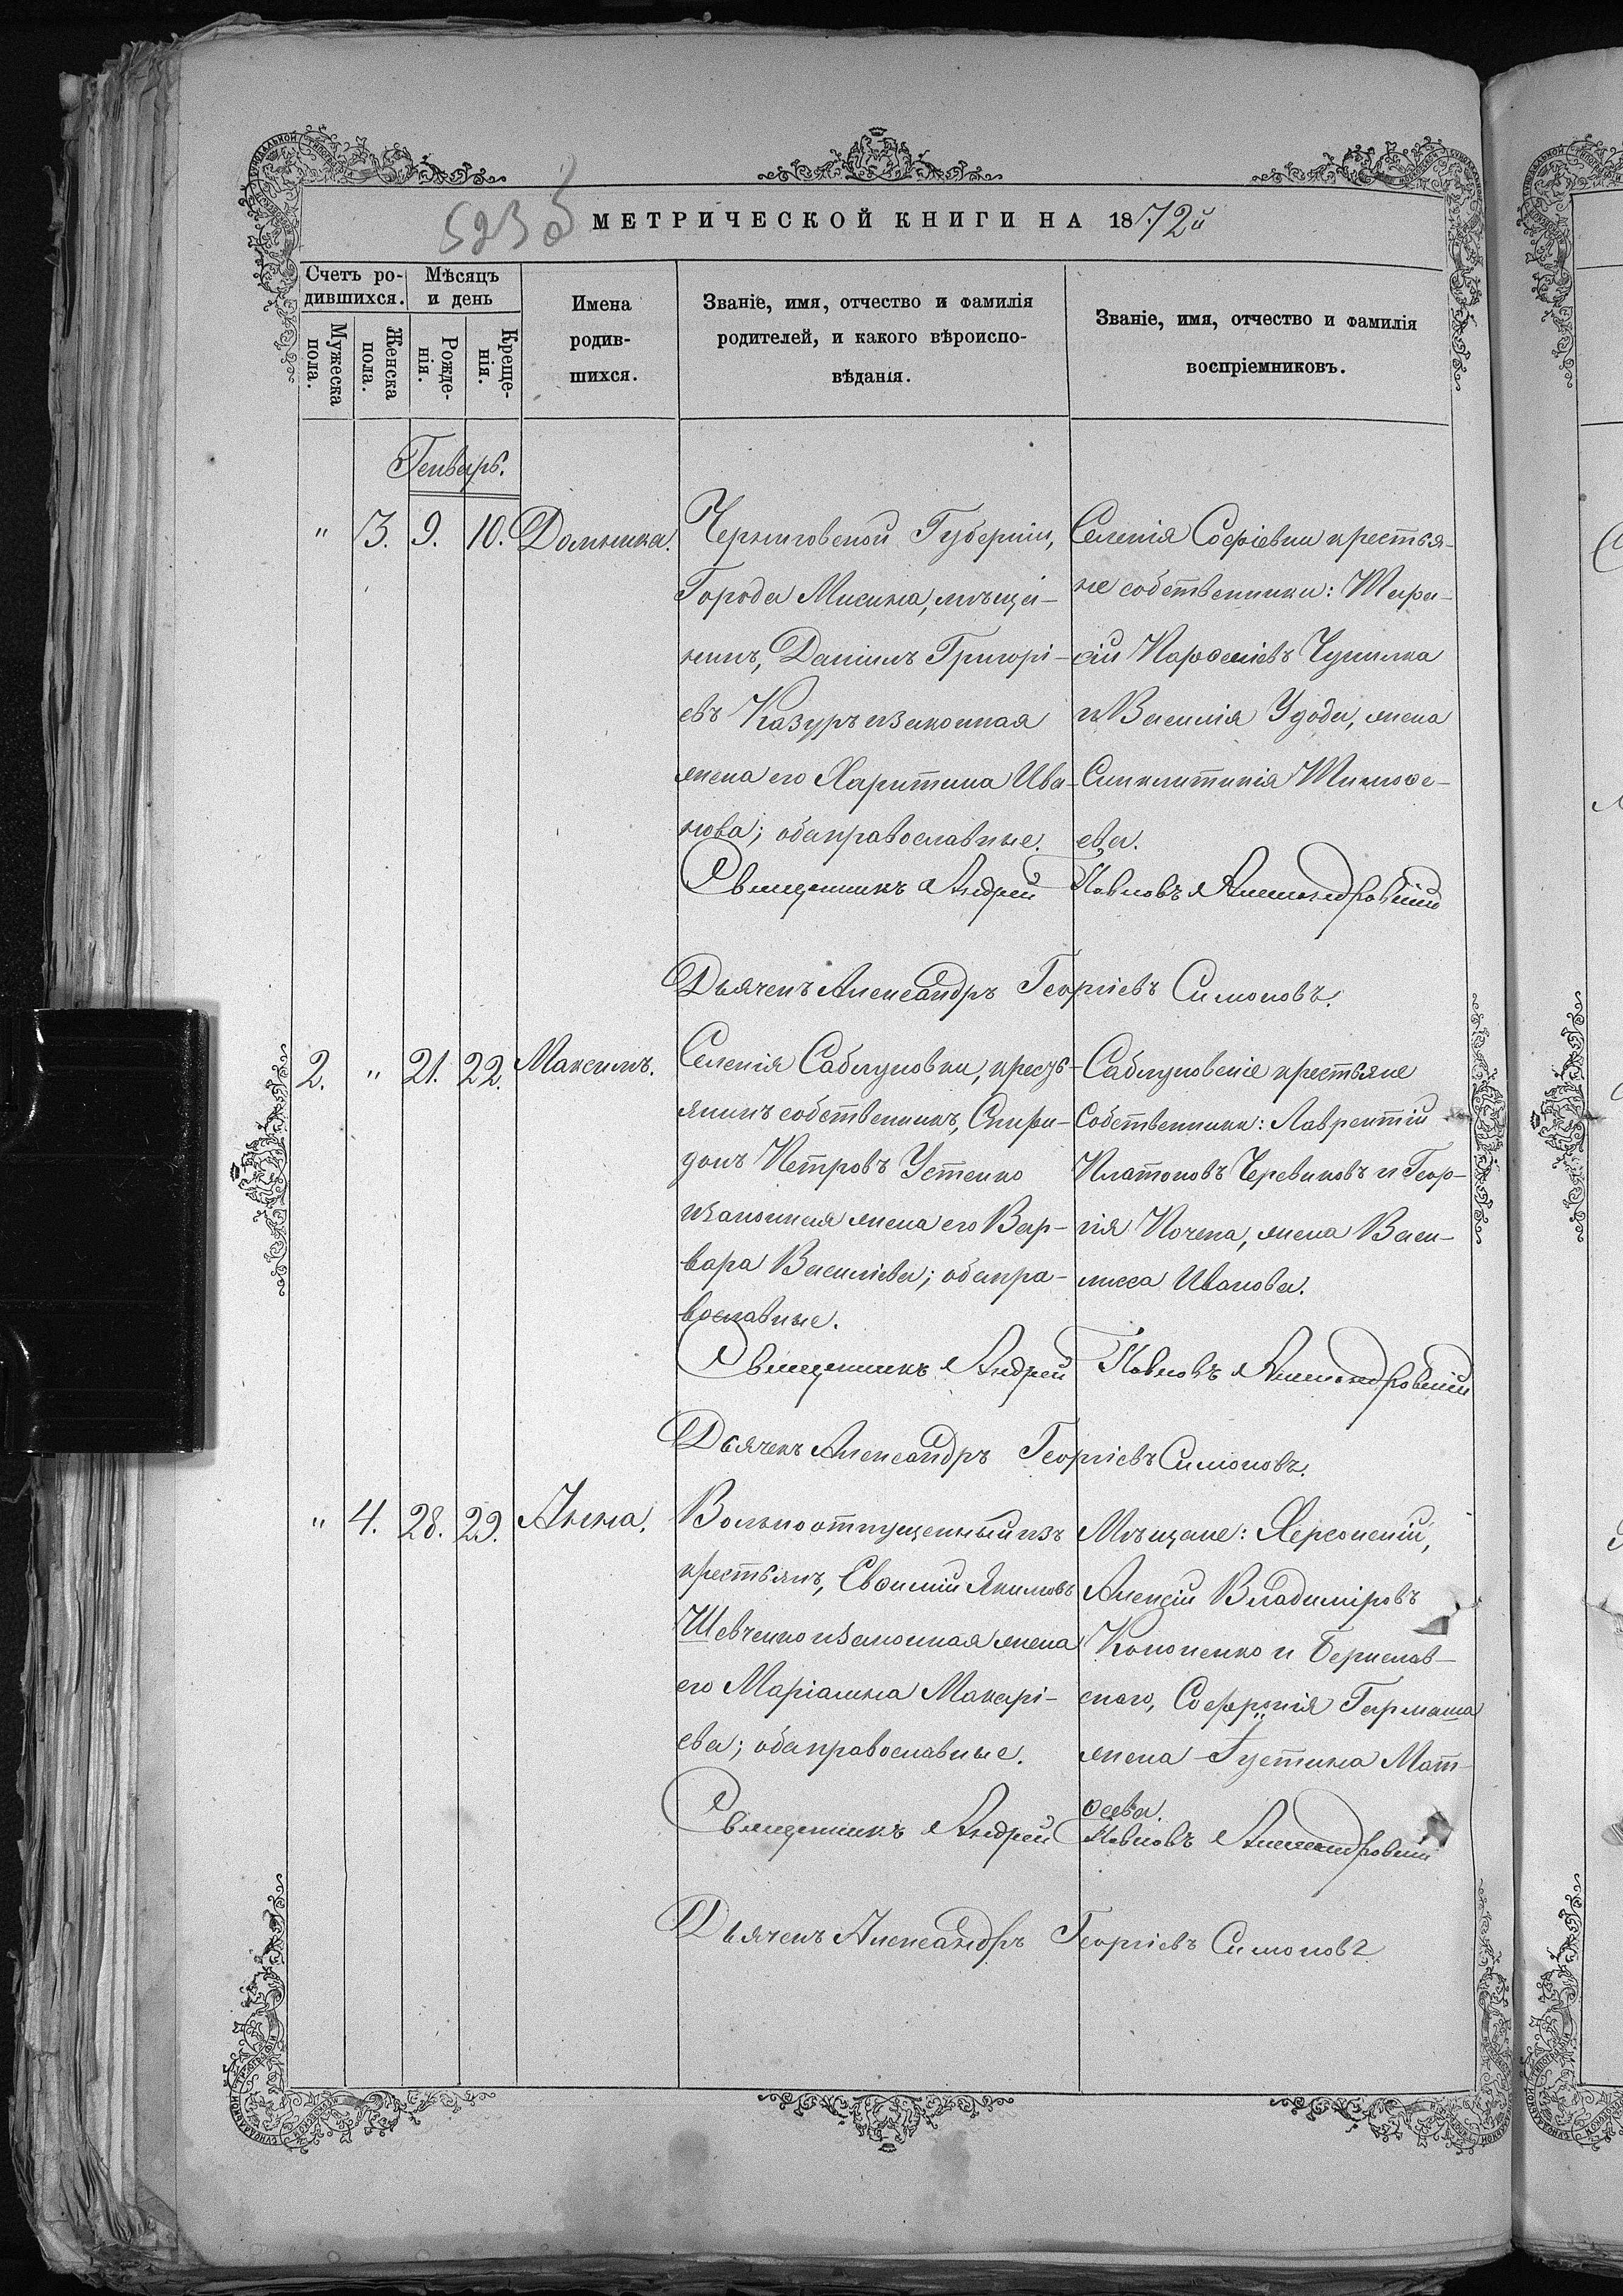 523 об
МЕТРИЧЕСКОЙ КНИГИ НА 1872й
Счетъ ро-
дившихся.
Мѣсяцъ
и день
Мужеска
пола.
Женска
пола.
Рожде-
нія.
Креще-
нія.
Имена
родив-
шихся.
Званіе, имя, отчество и фамилія
родителей, и какого вѣроиспо-
вѣданія.
Званіе, имя, отчество и фамилія
воспріемниковъ.
Генварь.
" 3. 9. 10. Домника.
Черниговской Губерніи,
Города Мисина, мѣща-
нинъ, Даніилъ Григорі-
евъ Казуръ и законная
жена его Харитина Ива-
нова; оба православные.
Селенія Софіевки крестья-
не собственники: Тара-
сій Парѳеніевъ Чумака
и Василія Удода, жена
Синклитикія Тимоѳе-
ева.
Священникъ Андрей Павловъ Александровскій
Дьячекъ Александръ Георгіевъ Симоновъ.
2. " 21. 22. Максимъ.
Селенія Саблуковки, кресть-
янинъ собственникъ, Спири-
донъ Петровъ Устенко
и законная жена его Вар-
вара Василіева; оба пра-
вославные.
Саблуковскіе крестьяне
Собственники: Лаврентій
Платоновъ Черевиковъ и Геор-
гія Почепа, жена Васи-
лисса Иванова.
Священникъ Андрей Павловъ Александровскій
Дьячекъ Александръ Георгіевъ Симоновъ.
" 4. 28. 29. Анна.
Вольноотпущенный изъ
крестьянъ, Евѳимій Якимовъ
Шевченко и законная жена
его Маріамна Макарі-
ева; оба православные.
Мѣщане: Херсонскій,
Алексій Владиміровъ
Кононенко и Берислав-
скаго, Софронія Гармаша
жена Іустина Мат-
ѳеева.
Священникъ Андрей Павловъ Александровскій
Дьячекъ Александръ Георгіевъ Симоновъ